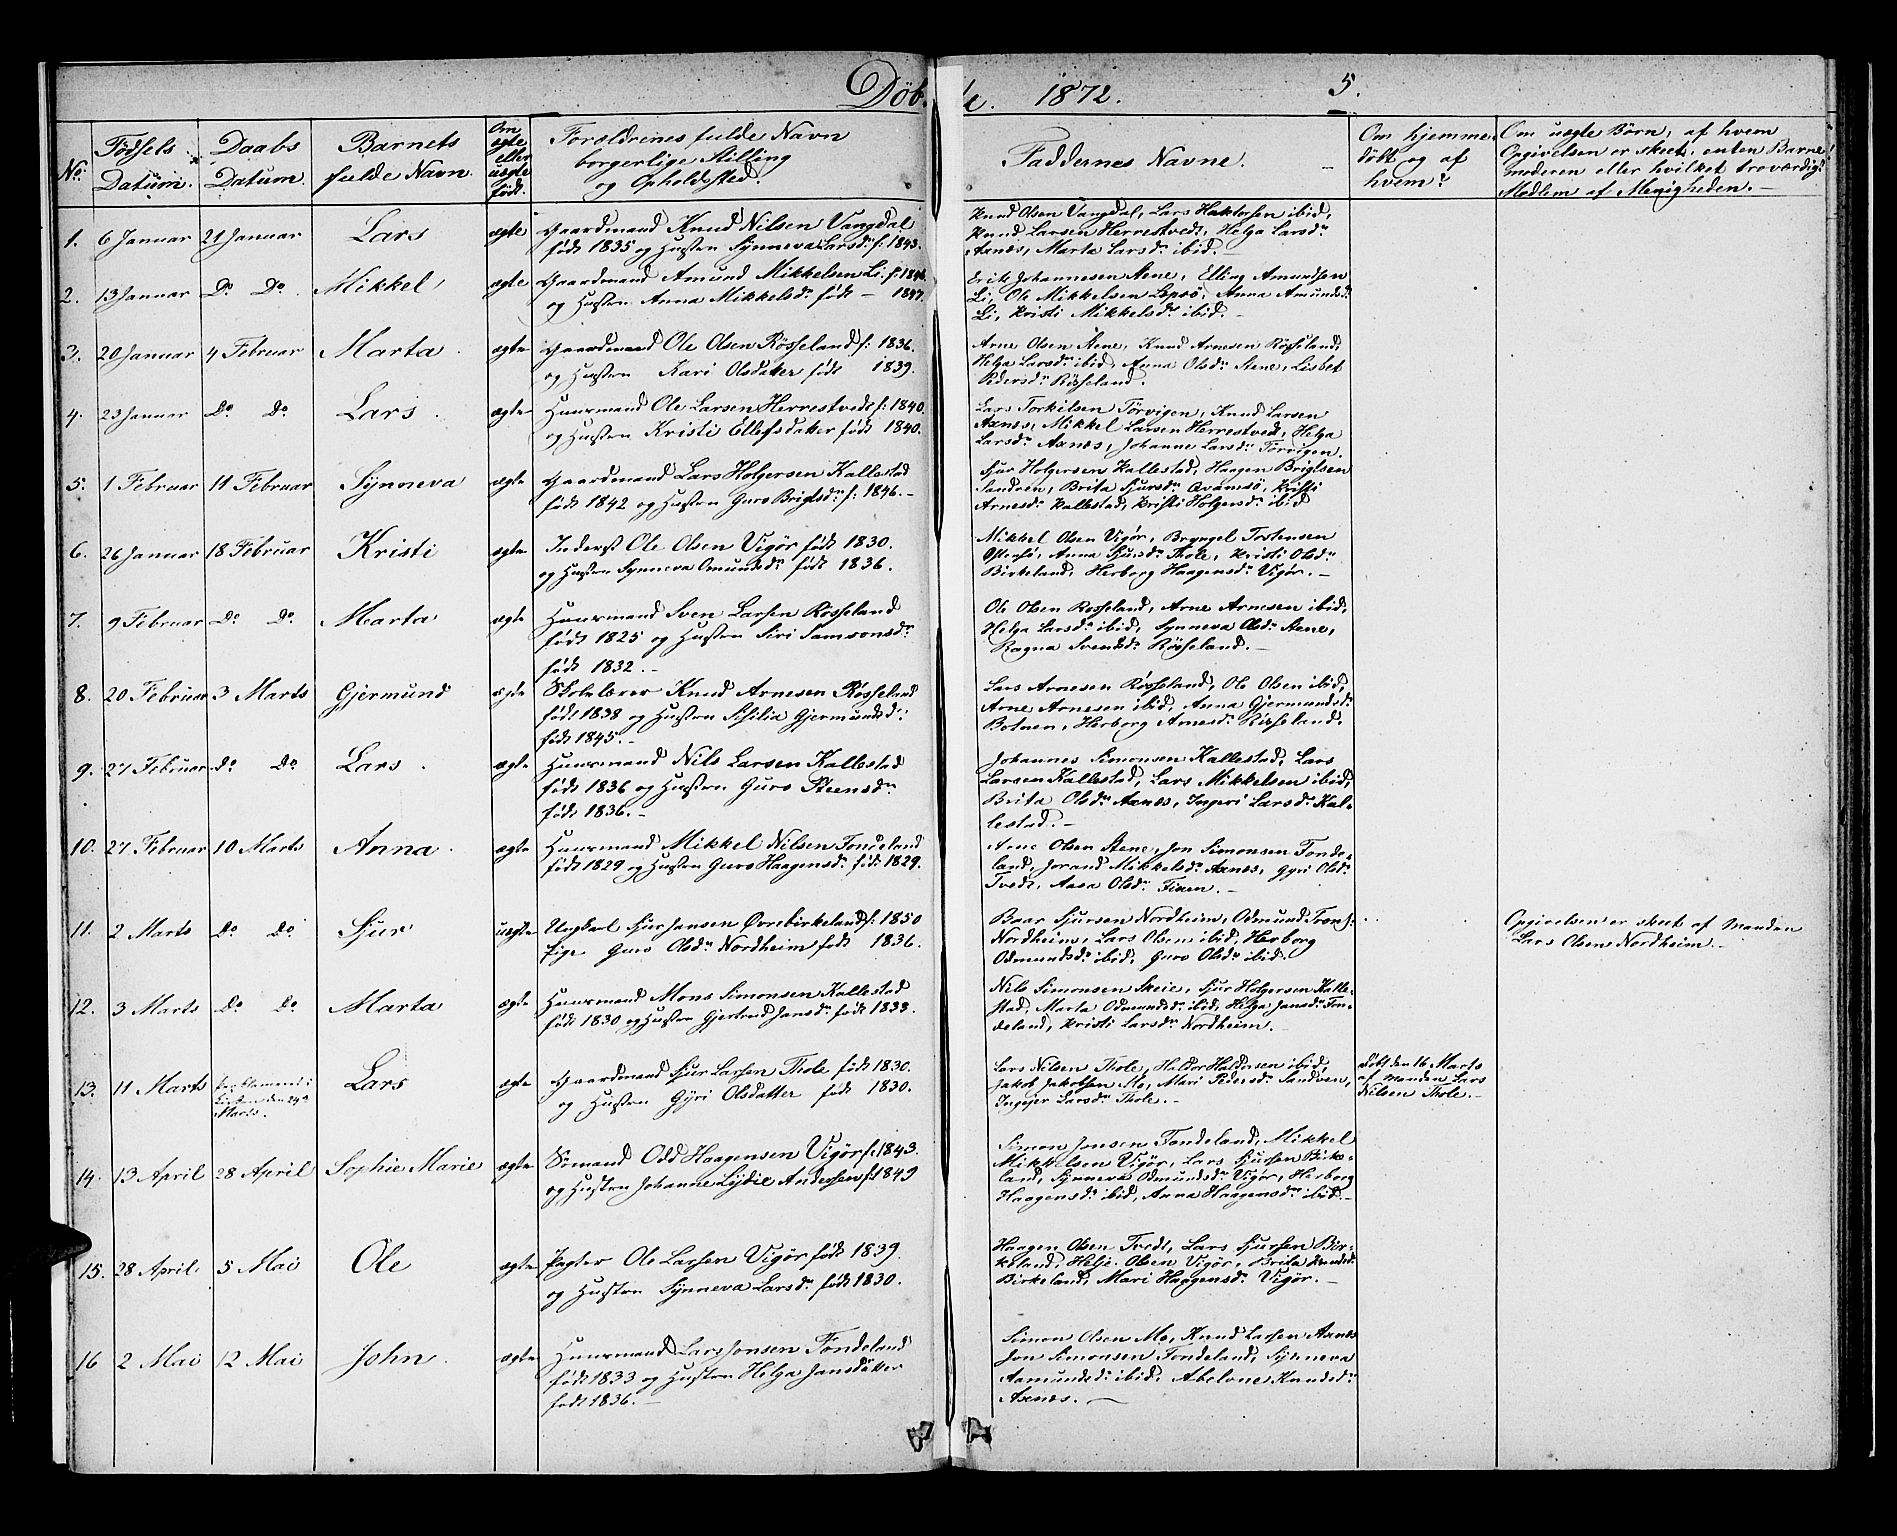 Døb
de. 1872. 5.
No. Fødsels Datum. Daabs Datum. Barnets fulde Navn. Om ægte eller uægte født. Forældrenes fulde Navn borgerlige Stilling og Opholdssted. Faddernes Navne. Om hjemmedøbt og af hvem? Om uægte Børn, af hvem Opgivelsen er skeet, enten Barnemoderen eller hvilket troværdigt Medlem af Menigheden.
1. 6 Januar 21 Januar Lars ægte Gaardmand Knud Nilsen Vangdal
født 1835 og Hustru Synneva Larsdr f: 1843.
Knud Olsen Vangdal, Lars Haktorsen ibid,
Knud Larsen Herrestvedt, Helga Larsdr
Axnes, Marta Larsdr ibid.
2. 13 Januar Do Do Mikkel ægte Gaardmand Amund Mikkelsen Li. f: 1846
og Hustru Anna Mikkelsdr født – 1847.
Erik Johannesen Stene, Elling Amundsen
Li, Ole Mikkelsen Lepsø, Anna Amundsdr
Li, Kristi Mikkelsdr ibid.
3. 20 Januar 4 Februar Marta ægte Gaardmand Ole Olsen Røsseland f: 1836.
og Hustru Kari Olsdatter født 1839.
Arne Olsen Stene, Knud Arnesen Røsseland,
Helga Larsdr ibid, Anna Olsdr Stene, Lisbet
Pedersdr Røsseland.
4. 23 Januar Do Do Lars ægte Huusmand Ole Larsen Herrestvedt f: 1840.
og Hustru Kristi Ellefsdatter født 1840.
Lars Torkilsen Tørvigen, Knud Larsen
Axnes, Mikkel Larsen Herrestvedt, Helga
Larsdr Axnes, Johanne Larsdr Tørvigen.
5. 1 Februar 11 Februar Synneva ægte Gaardmand Lars Holgersen Kallestad
født 1842 og Hustru Guro Brigtsdr f: 1846.
Sjur Holgersen Kallestad, Haagen Brigtsen
Sandven, Brita Sjursdr Qvamsø, Kristi
Arnesdr Kallestad, Kristi Holgersdr ibid
6. 26 Januar 18 Februar Kristi ægte Inderst Ole Olsen Vigør født 1830.
og Hustru Synneva Omundsdr født 1836.
Mikkel Olsen Vigør, Bryngel Torstensen
Østensø, Anna Sjursdr Thole, Kristi Olsdr
Birkeland, Herborg Haagensdr Vigør.
7. 9 Februar Do Do Marta ægte Huusmand Sven Larsen Røsseland
født 1825 og Hustru Siri Samsonsdr
født 1832.
Ole Olsen Røsseland, Arne Arnesen ibid,
Helga Larsdr ibid, Synneva Olsdr Stene,
Ragna Svendsdr Røsseland.
8. 20 Februar 3 Marts Gjermund ægte Skolelærer Knud Arnesen Røsseland
født 1838 og Hustru Sesilia Gjermundsd:
født 1845.
Lars Arnesen Røsseland, Ole Olsen ibid,
Arne Arnesen ibid, Anna Gjermundsdr
Botnen, Herborg Arnesdr Røsseland,
9. 27 Februar do Do Lars ægte Huusmand Nils Larsen Kallestad
født 1836 og Hustru Guro Steensdr
født 1836.
Johannes Simonsen Kallestad, Lars
Larsen Kallestad, Lars Mikkelsen ibid,
Brita Olsdr Axnes, Ingeri Larsdr Kal-
lestad.
10. 27 Februar 10 Marts Anna ægte Huusmand Mikkel Nilsen Tondeland
født 1829 og Hustru Guro Haagensdr født 1829.
Arne Olsen Stene, Jon Simonsen Tonde-
land, Jorand Mikkelsdr Axnes, Gyri Olsdr
Tvedt, Aasa Olsdr Fixen.
11. 2 Marts Do Do Sjur uægte Ungkarl Sjur Jansen Øvrebirkeland f: 1850
Pige Guro Olsdr Nordheim født 1836.
Baar Sjursen Nordheim, Odmund
Nordheim, Lars Olsen ibid, Herborg
Odmundsdr ibid, Guro Olsdr ibid.
Opgivelsen er skeet af Manden
Lars Olsen Nordheim.
12. 3 Marts Do Do Marta ægte Huusmand Mons Simonsen Kallestad
født 1830 og Hustru Gjertrud Jansdr født 1833.
Nils Simonsen Skeie, Sjur Holgersen Kalle-
stad, Marta Odmundsdr ibid, Helga Jansdr Ton-
deland, Kristi Larsdr Nordheim.
13. 11 Marts Kirken den 24de Marts. Lars ægte Gaardmand Sjur Larsen Thole født 1830.
og Hustru Gyri Olsdatter født 1830.
Lars Nilsen Thole, Haldor Haldorsen ibid,
Jakob Jakobsen Mo, Mari Pedersdr Sandven,
Ingejer Larsdr Thole.
døbt den 16 Marts
af Manden Lars
Nilsen Thole.
14. 13 April 28 April Sophie Marie ægte Sømand Odd Haagensen Vigør f: 1843.
og Hustru Johanne Lydie Andersen f: 1849
Simon Jonsen Tondeland, Mikkel
Mikkelsen Vigør, Lars Sjursen Birke-
land, Synneva Odmundsdr Vigør, Herborg
Haagensdr ibid, Anna Haagensdr ibid.
15. 28 April 5 Mai Ole ægte Pagter Ole Larsen Vigør født 1839.
og Hustru Synneva Larsdr født 1830.
Haagen Olsen Tvedt, Lars Sjursen Bir-
keland, Helje Olsen Vigør, Brita Knudsdr
Birkeland, Mari Haagensdr Vigør.
16 2 Mai 12 Mai John ægte Huusmand Lars Jonsen Tondeland
født 1833 og Hustru Helga Jansdatter
født 1836.
Simon Olsen Mo, Knud Larsen Axnes
Jon Simonsen Tondeland, Synneva
Aamundsdr ibid, Abelone Knudsdr
Axnes.